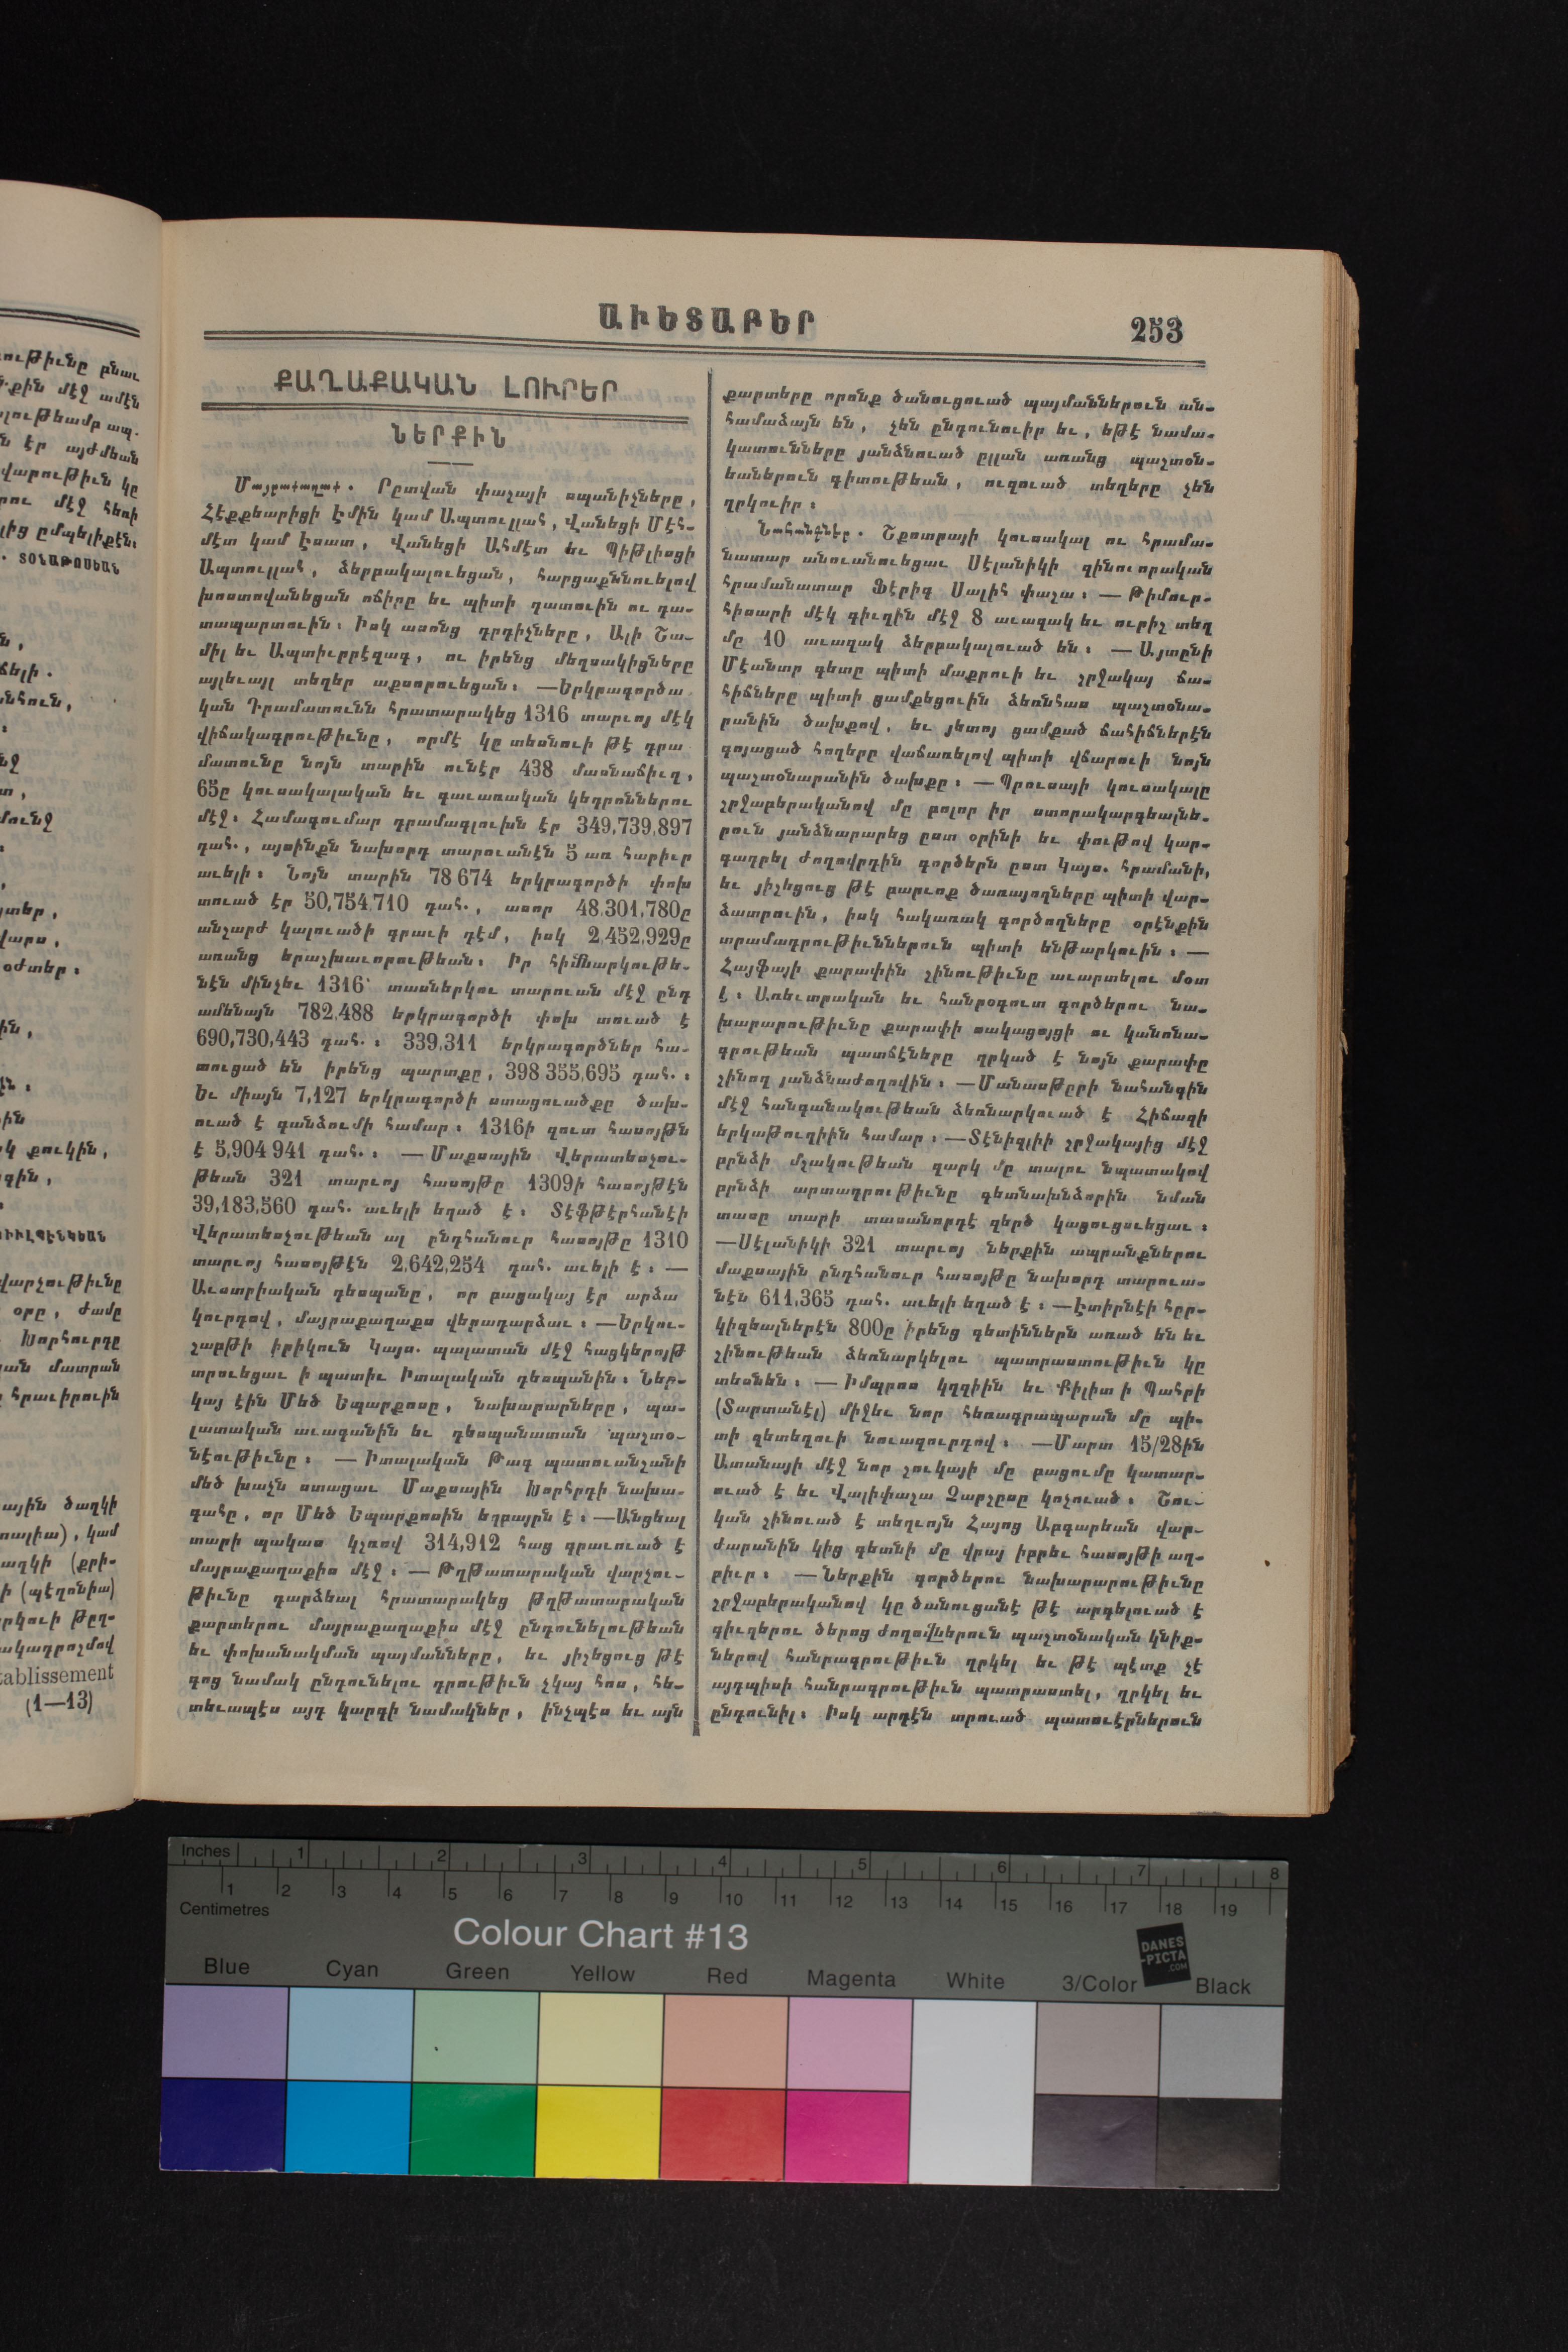 ԱՒԵՏԱԲԵՐ
253
ՔԱՂԱՔԱԿԱՆ ԼՈՒՐԵՐ
ՆԵՐՔԻՆ
Մայրաքաղաք. Րըտվան փաշայի սպանիչները,
Հէքքեարիցի Էմին կամ Ապտուլլահ, Վանեցի Մէհ-
մէտ կամ Էսատ, Վանեցի Ահմէտ եւ Պիթլիսցի
Ապտուլլահ, ձերբակալուեցան, հարցաքննուելով
խոստովանեցան ոճիրը եւ պիտի դատուին ու դա-
տապարտուին։ Իսկ ասոնց դրդիչները, Ալի Շա-
միլ եւ Ապտիւրրէզագ, ու իրենց մեղսակիցները
այլեւայլ տեղեր աքսորուեցան։ —Երկրագործա
կան Դրամատունն հրատարակեց 1316 տարւոյ մէկ
վիճակագրութիւնը, որմէ կը տեսնուի թէ դրա
մատունը նոյն տարին ունէր 438 մասնաճիւղ,
65ը կուսակալական եւ գաւառական կեդրոններու
մէջ։ Համագումար դրամագլուխն էր 349,739,897
դահ., այսինքն նախորդ տարուանէն 5 առ հարիւր
աւելի։ Նոյն տարին 78 674 երկրագործի փոխ
տուած էր 50,754,710 դահ., ասոր 48,301,780ը
անշարժ կալուածի գրաւի դէմ, իսկ 2,452,929ը
առանց երաշխաւորութեան։ Իր հիմնարկութե-
նէն մինչեւ 1316 տասներկու տարուան մէջ ընդ
ամենայն 782,488 երկրագործի փոխ տուած է
690,730,443 դահ.։ 339,311 երկրագործներ հա-
տուցած են իրենց պարտքը, 398 355,695 դահ.։
Եւ միայն 7,127 երկրագործի ստացուածքը ծախ-
ուած է գանձումի համար։ 1316ի զուտ հասոյթն
է 5,904 941 դահ.։ —Մաքսային Վերատեսչու-
թեան 321 տարւոյ հասոյթը 1309ի հասոյթէն
39,183,560 դահ. աւելի եղած է։ Տէֆթէրհանէի
Վերատեսչութեան ալ ընդհանուր հասոյթը 1310
տարւոյ հասոյթէն 2,642,254 դահ. աւելի է։ —
Աւստրիական դեսպանը, որ բացակայ էր արձա
կուրդով, մայրաքաղաքս վերադարձաւ։ —Երկու-
շաբթի իրիկուն Կայս. պալատան մէջ հացկերոյթ
տրուեցաւ ի պատիւ Իտալական դեսպանին։ Ներ-
կայ էին Մեծ Եպարքոսը, նախարարները, պա-
լատական աւագանին եւ դեսպանատան պաշտօ-
նէութիւնը։ —Իտալական Թագ պատուանշանի
մեծ խաչն ստացաւ Մաքսային Խորհրդի նախա-
գահը, որ Մեծ Եպարքոսին եղբայրն է։ —Անցեալ
տարի պակաս կշռով 314,912 հաց գրաւուած է
մայրաքաղաքիս մէջ։ —Թղթատարական վարչու-
թիւնը դարձեալ հրատարակեց թղթատարական
քարտերու մայրաքաղաքիս մէջ ընդունելութեան
եւ փոխանակման պայմանները, եւ յիշեցուց թէ
գոց նամակ ընդունելու դրութիւն չկայ հոս, հե-
տեւապէս այդ կարգի նամակներ, ինչպէս եւ այն
քարտերը որոնք ծանուցուած պայմաններուն ան-
համաձայն են, չեն ընդունուիր եւ, եթէ նամա-
կատունները յանձնուած ըլլան առանց պաշտօն-
եաներուն գիտութեան, ուզուած տեղերը չեն
ղրկուիր։
Նահանգներ. Շքոտրայի կուսակալ ու հրամա-
նատար անուանուեցաւ Սէլանիկի զինուորական
հրամանատար Ֆէրիգ Սալիհ փաշա։ —Թիմուր-
հիսարի մէկ գիւղին մէջ 8 աւազակ եւ ուրիշ տեղ
մը 10 աւազակ ձերբակալուած են։ —Այտընի
Մէանտր գետը պիտի մաքրուի եւ շրջակայ ճա-
հիճները պիտի ցամքեցուին ձեռնհաս պաշտօնա-
րանին ծախքով, եւ յետոյ ցամքած ճահիճներէն
գոյացած հողերը վաճառելով պիտի վճարուի նոյն
պաշտօնարանին ծախքը։ —Պրուսայի կուսակալը
շրջաբերականով մը բոլոր իր ստորակարգեալնե-
րուն յանձնարարեց ըստ օրինի եւ փութով կար-
գադրել ժողովրդին գործերն ըստ Կայս. հրամանի,
եւ յիշեցուց թէ բարւոք ծառայողները պիտի վար-
ձատրուին, իսկ հակառակ գործողները օրէնքին
տրամադրութիւններուն պիտի ենթարկուին։ —
Հայֆայի քարափին շինութիւնը աւարտելու մօտ
է։ Առեւտրական եւ հանրօգուտ գործերու նա-
խարարութիւնը քարափի սակացոյցի ու կանոնա-
գրութեան պատճէները ղրկած է նոյն քարափը
շինող յանձնաժողովին։ —Մանասթըրի նահանգին
մէջ հանգանակութեան ձեռնարկուած է Հիճազի
երկաթուղիին համար։ —Տէնիզլիի շրջակայից մէջ
բրնձի մշակութեան զարկ մը տալու նպատակով
բրնձի արտադրութիւնը գետնախնձորին նման
տասը տարի տասանորդէ զերծ կացուցուեցաւ։
—Սէլանիկի 321 տարւոյ ներքին ապրանքներու
մաքսային ընդհանուր հասոյթը նախորդ տարուա-
նէն 611,365 դահ. աւելի եղած է։ —Էտիրնէի հըր-
կիզեալներէն 800ը իրենց գետիններն առած են եւ
շինութեան ձեռնարկելու պատրաստութիւն կը
տեսնեն։ —Իմպրոս կղզիին եւ Քիլիտ ի Պահրի
(Տարտանէլ) միջեւ նոր հեռագրապարան մը պի-
տի զետեղուի նուազուրդով։ —Մարտ 15/28ին
Ատանայի մէջ նոր շուկայի մը բացումը կատար-
ուած է եւ Վալիփաշա Չարշըսը կոչուած։ Շու-
կան շինուած է տեղւոյն Հայոց Աբգարեան վար-
ժարանին կից գետնի մը վրայ իբրեւ հասոյթի աղ-
բիւր։ —Ներքին գործերու նախարարութիւնը
շրջաբերականով կը ծանուցանէ թէ արգելուած է
գիւղերու ծերոց ժողովներուն պաշտօնական կնիք-
ներով հանրագրութիւն ղրկել եւ թէ պէտք չէ
այդպիսի հանրագրութիւն պատրաստել, ղրկել եւ
ընդունիլ։ Իսկ արդէն տրուած պատուէրներուն
tablissement
(1—13)
Inches 1 2 3 4 5 6 7 8
1 2 3 4 5 6 7 8 9 10 11 12 13 14 15 16 17 18 19
Centimetres
Colour Chart #13
DANES
-PICTA
.COM
Blue Cyan Green Yellow Red Magenta White 3/Color Black